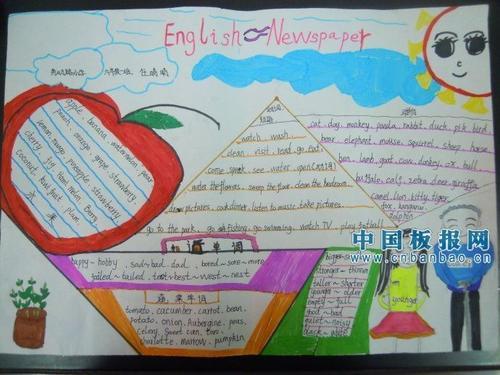 English Newspaper
apple banana watermelon pear
peach orange grape strawberry
lemon mango pineapple strawberry
cherry fig Hami melon Berry
coconut kiwi fruit plum
水果
动词
短语
watch wash
clean visit read go eat
come speak see water open
water the flowers sweep the floor clean the bedroom
draw pictures cook dinner listen to music take pictures
go to the park go fishing go swimming watch TV play football
动物
cat dog monkey panda rabbit duck pig bird
bear elephant mouse squirrel sheep horse
hen lamb goat cow donkey ox bull
buffalo calf zebra deer giraffe
camel lion kitty tiger
fox kangaroo
dolphin
单词
happy～hobby sad～bad dad bored sore～more
failed～tailed test～best～west～nest
蔬菜单词
tomato cucumber carrot bean
potato onion Aubergine peas
celery sweet corn
charlotte marrow pumpkin
bigger～
stronger～thinner
taller～shorter
younger～older
empty～full
good～bad
quiet～noisy
black～white
younger
中国板报网
www.cnbanbao.cn